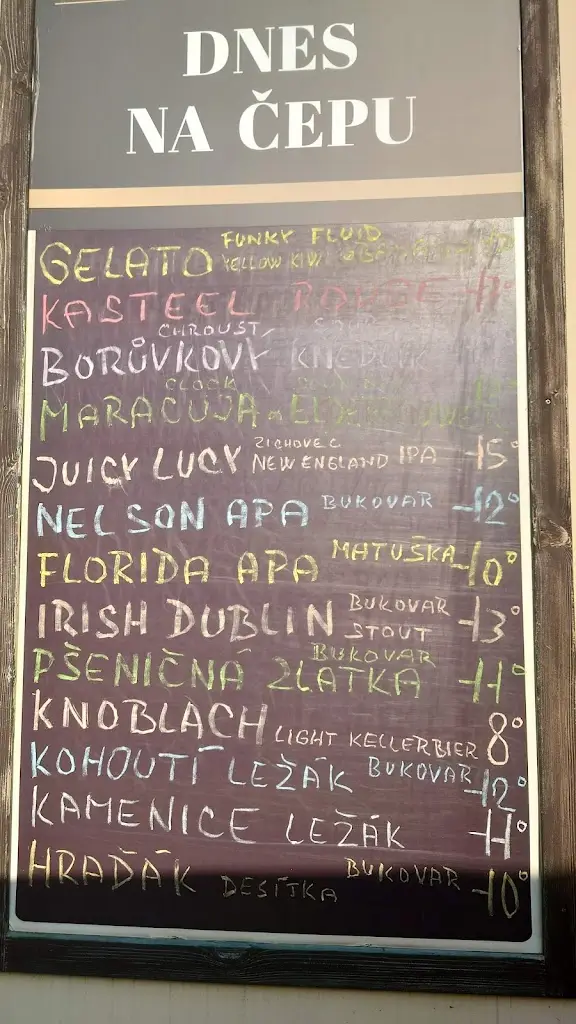 DNES
NA ČEPU
FUNKY FLUID
GELATO YELLOW KIWI
KASTEEL ROUGE
CHROUST
BORŮVKOVÝ KNEDLÍK
CLOCK
MARACUJA
ZICHOVEC
JUICY LUCY NEW ENGLAND IPA 15°
NELSON APA BUKOVAR 12°
FLORIDA APA MATUŠKA 10°
BUKOVAR
IRISH DUBLIN STOUT 13°
BUKOVAR
PŠENIČNÁ ZLATKA 11°
KNOBLACH LIGHT KELLERBIER 8°
KOHOUTÍ LEŽÁK BUKOVAR 12°
KAMENICE LEŽÁK 11°
HRAĎÁK DESÍTKA BUKOVAR 10°